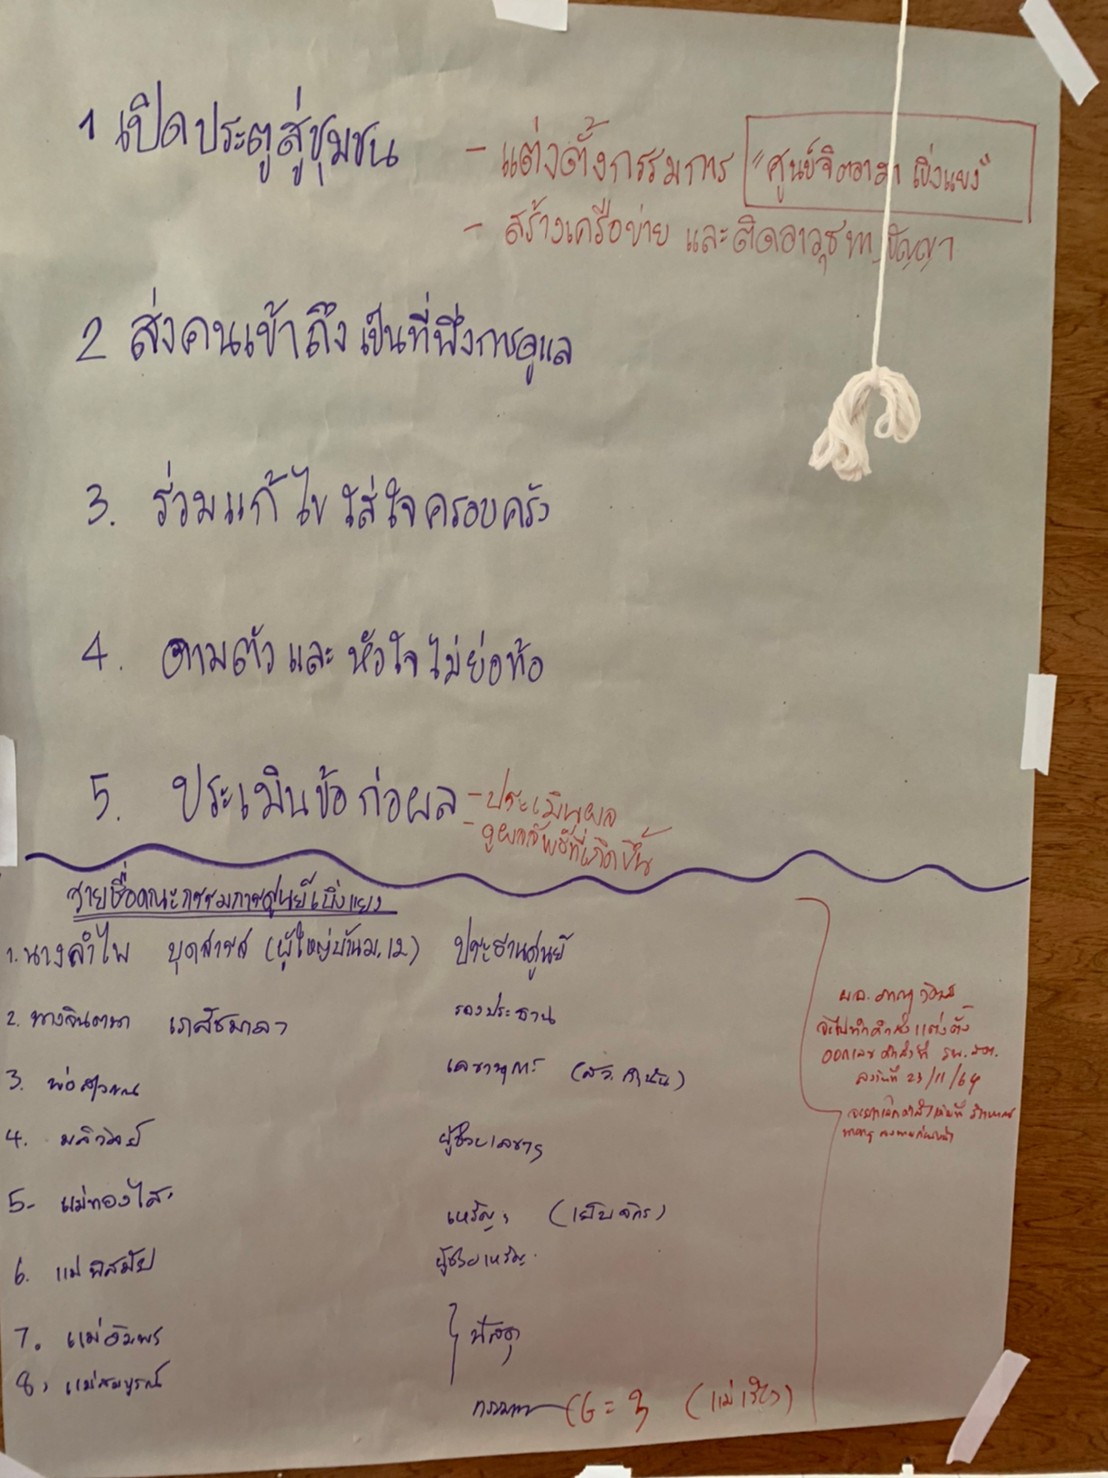 1 เปิดประตูสู่ชุมชน
- แต่งตั้งกรรมการ "ศูนย์จิตอาสา เบิ่งแยง"
- สร้างเครือข่าย และติดอาวุธทางปัญญา
2 ส่งคนเข้าถึง เป็นที่พึ่งการดูแล
3. ร่วมแก้ไข ใส่ใจครอบครัว
4. ตามตัว และ หัวใจไม่ย่อท้อ
5. ประเมินข้อ ก่อผล
- ประเมินผล
- ดูผลลัพธ์ที่เกิดขึ้น
รายชื่อคณะกรรมการศูนย์เบิ่งแยง
1. นางลำไพ บุดสาระ (ผู้ใหญ่บ้าน ม.12) ประธานศูนย์
2. นางจินตนา เภสัชมาลา รองประธาน
3. พ่อสุวรรณ เลขานุการ (สว. กำนัน)
4. มลิวัลย์ ผู้ช่วยเลขาฯ
5- แม่ทองใส เหรัญฯ (เย็บจักร)
6. แม่พิสมัย ผู้ช่วยเหรัญ
7. แม่อัมพร
พัสดุ
8. แม่สมบูรณ์
กรรมการ CG = 3
ผอ.
จะไปทำคำสั่งแต่งตั้ง
ออกเลขคำสั่งที่ รพ.สต.
ลงวันที่ 23/11/64